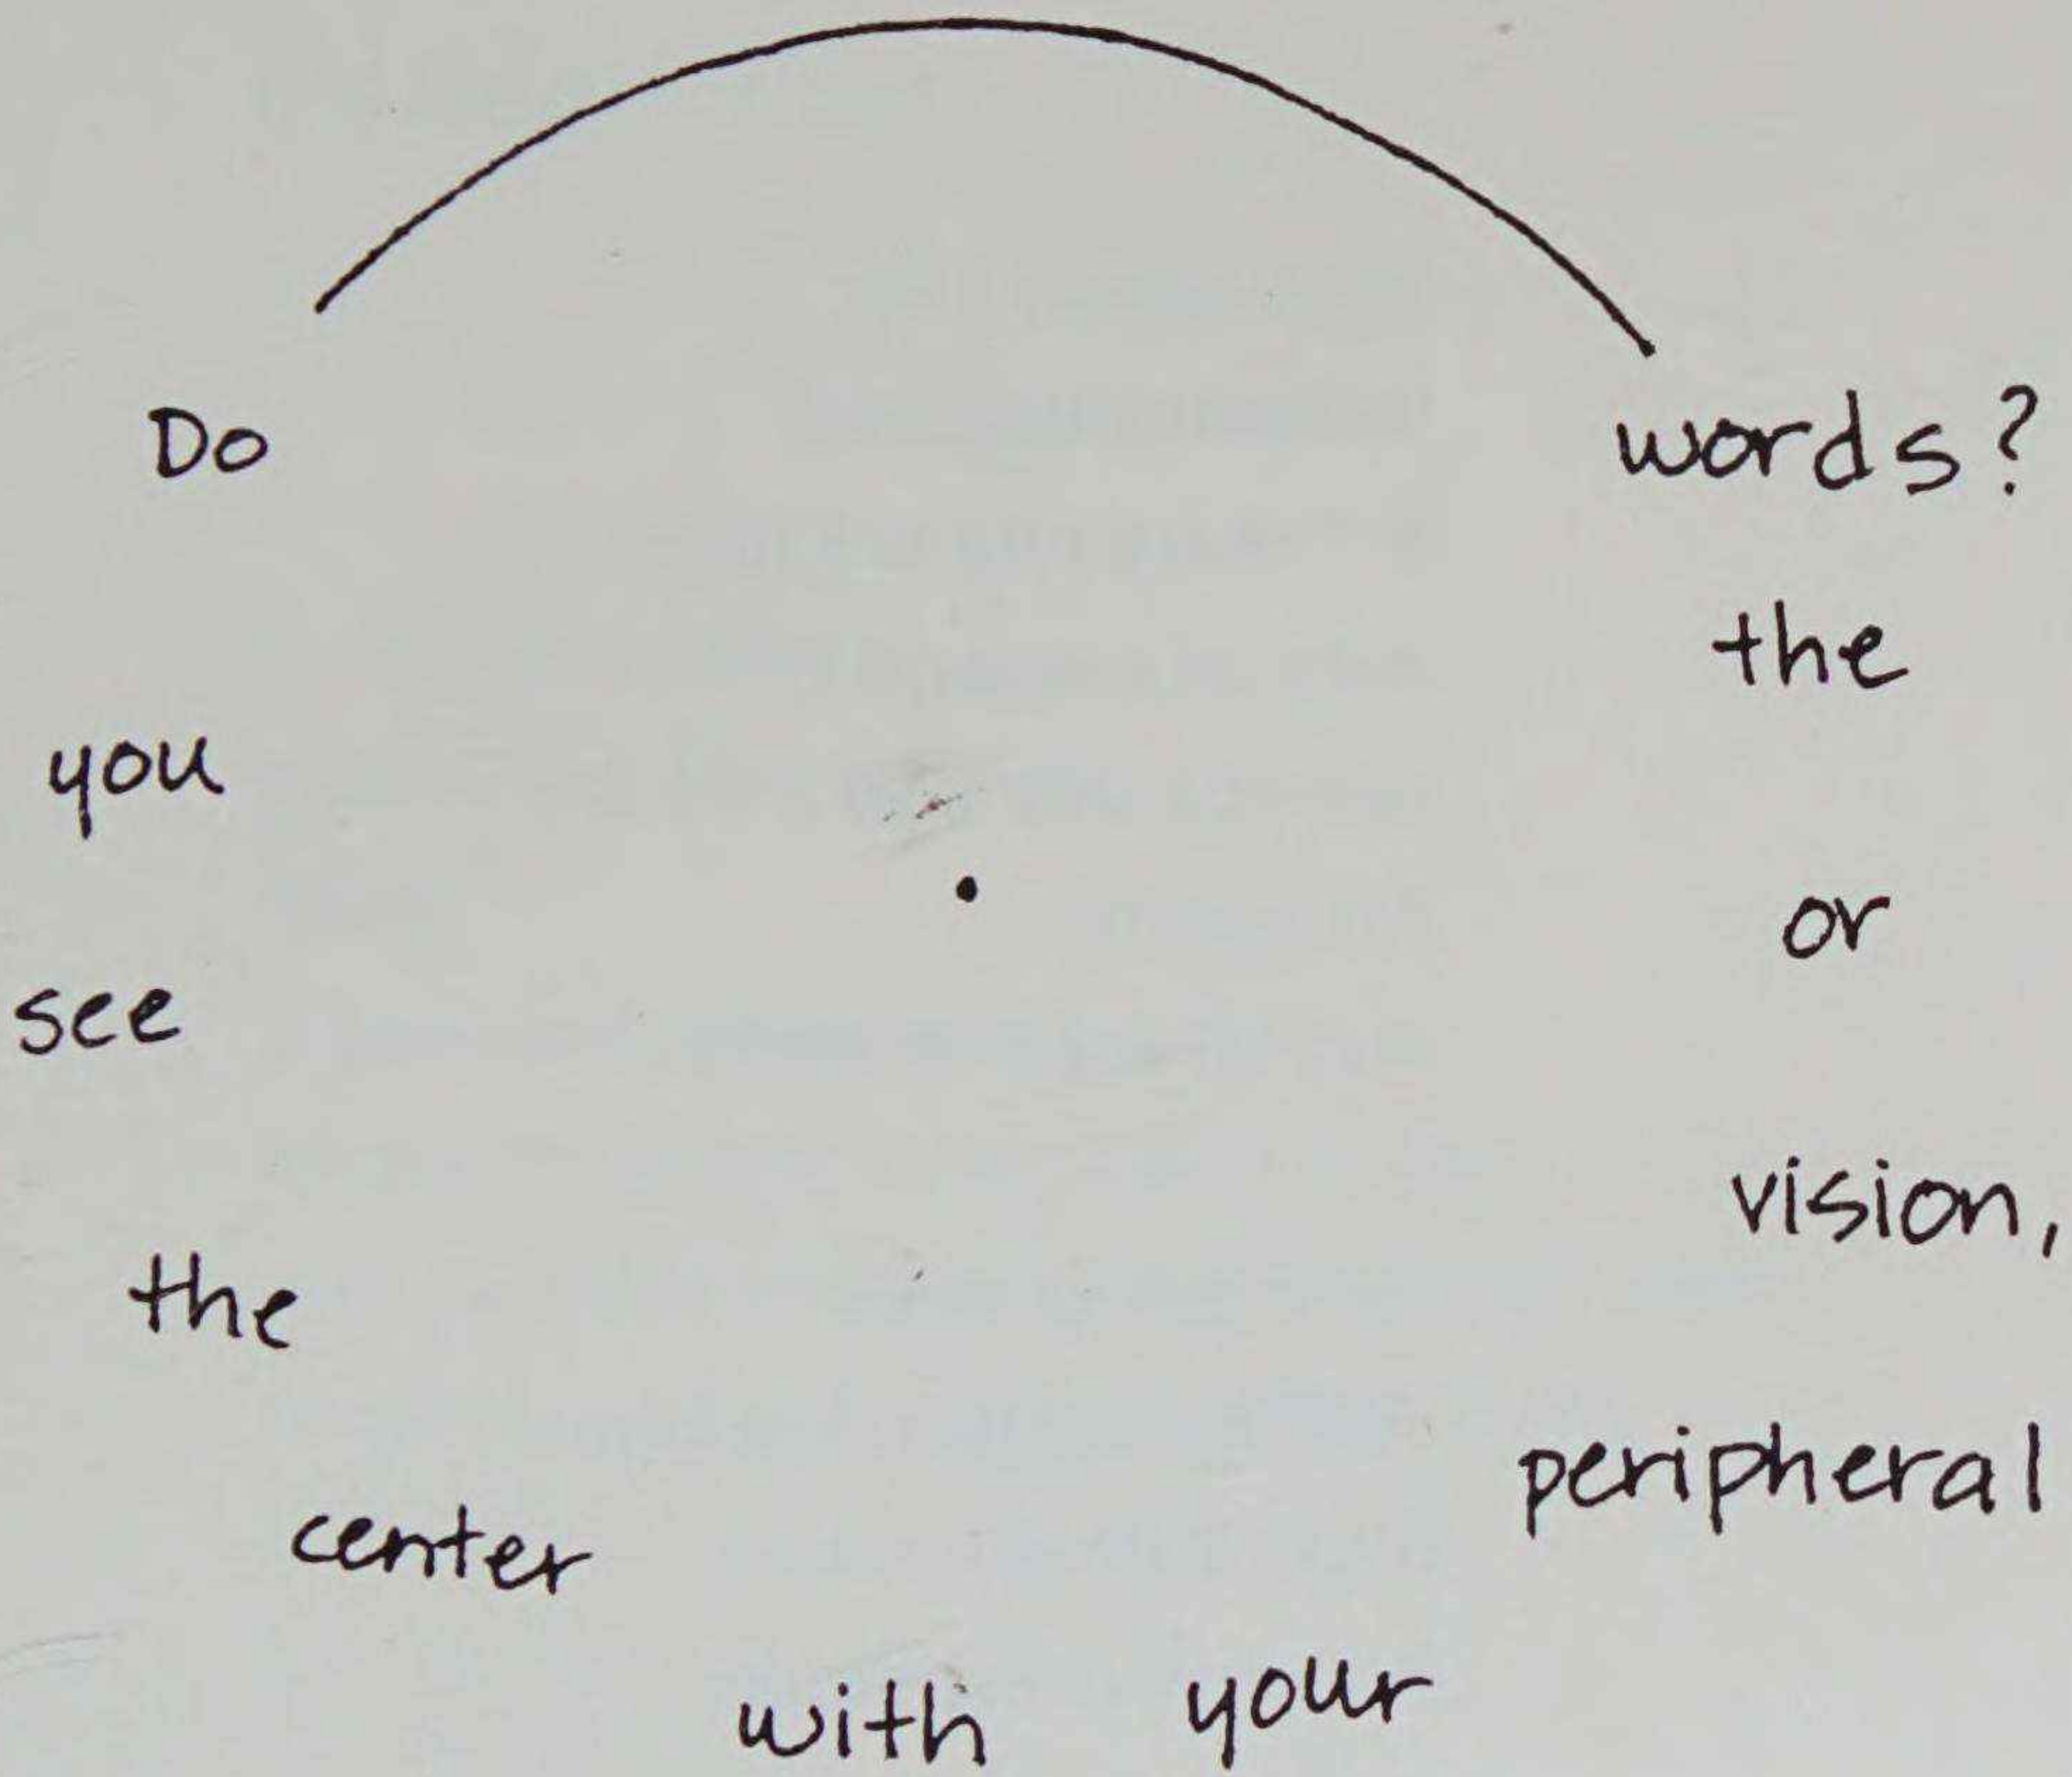 Do
you
see
the
center
with
your
peripheral
vision,
or
the
words?